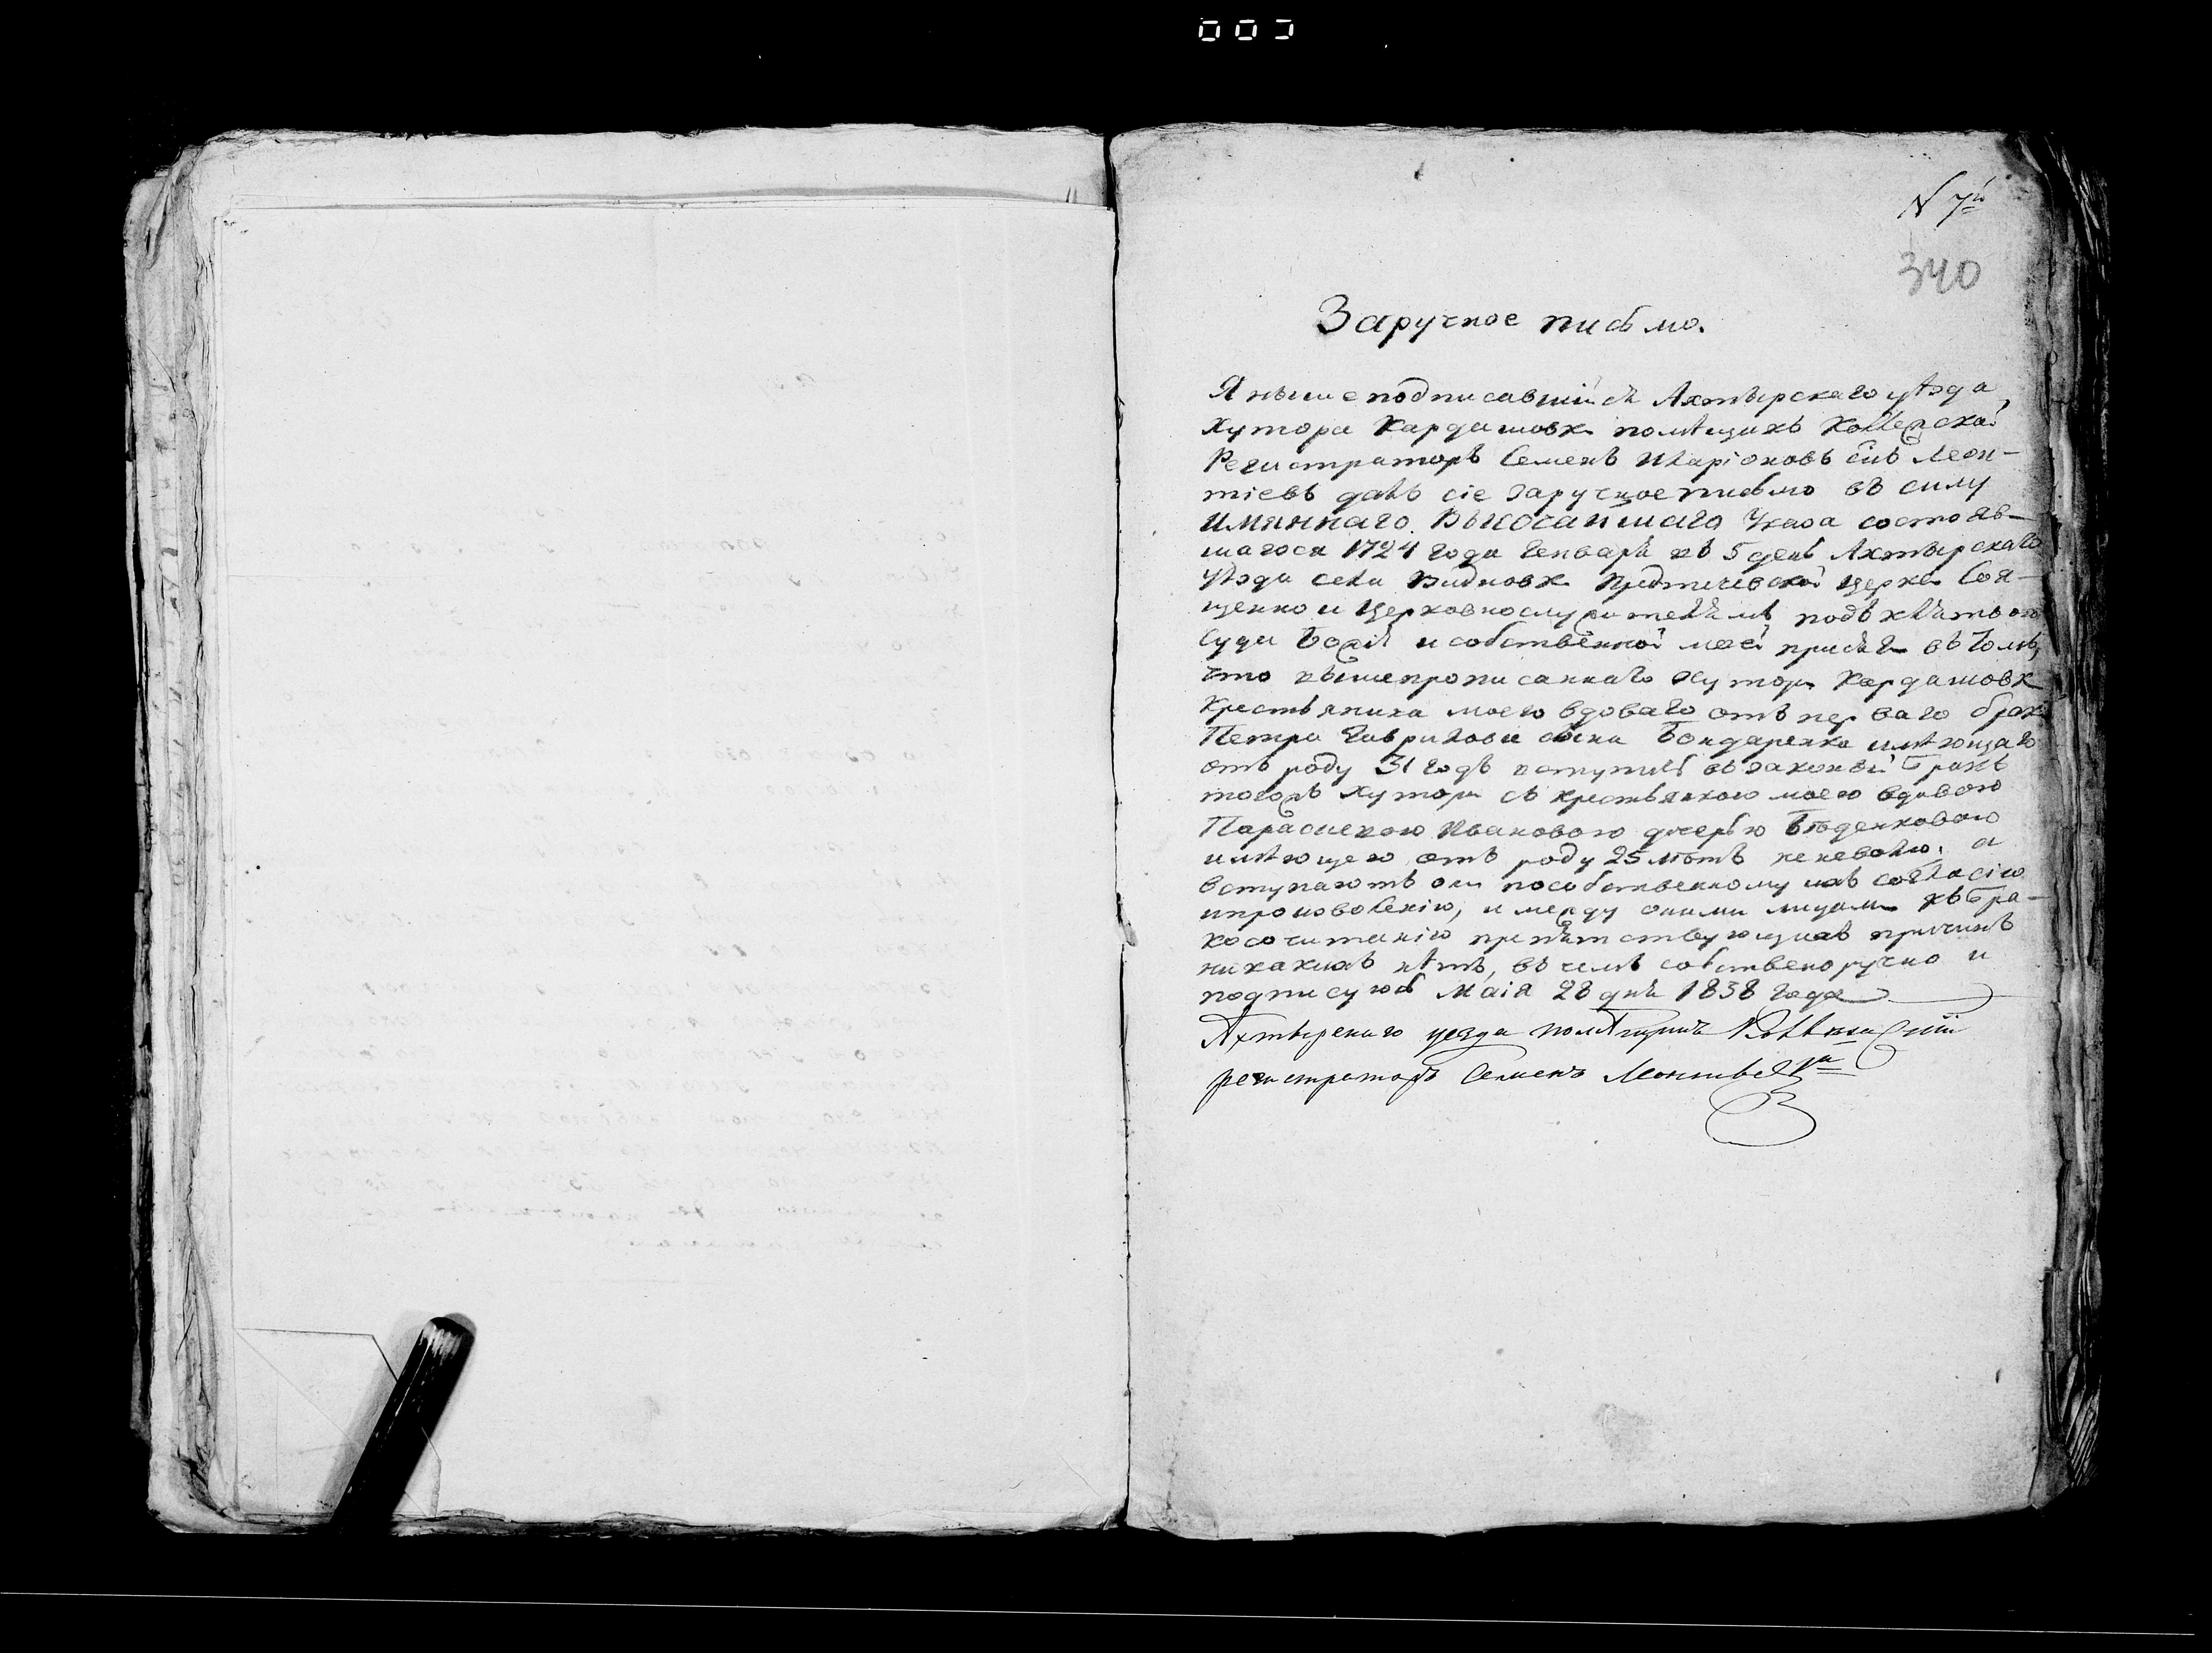 N 7й
340
Заручное письмо.
Я нышеподписавшійся Ахтырскаго уѣзда
хутора Кардашовки помѣщикъ Коллежской
Регистраторъ Семенъ Иларіоновъ сынъ Леон-
тіевъ далъ сіе заручное письмо въ силу
Имяннаго Высочайшаго Указа состояв-
шагося 1724 года Генваря въ 5 день Ахтырскаго
Уѣзда села Видновки Предтичевской Церкви Свя-
щенно и Церковнослужителямъ, подъ клятвою
Суда Божія и собственной моей присяги въ томъ,
что вышепрописаннаго хутора Кардашовки
Крестьянина моего вдоваго отъ перваго брака
Петра Гаврилова сына Бондаренка имѣющаго
отъ роду 31 годъ вступить въ законный Бракъ
тогожъ хутора съ крестьянкою моею вдовою
Параскекою Ивановою дочерью
имѣющею отъ роду 25 лѣтъ неневолю. а
вступаютъ они пособственному ихъ согласію
ипроизволенію, и между оними лицами къ Бра-
косочитанію препятствующихъ причинъ
никакихъ нѣтъ, въ чемъ собственоручно и
подписуюсь Маія 28 дня 1838 года
Ахтырскаго уезда помѣщикъ Коллежскій
регистраторъ Семенъ Леонтьевъ